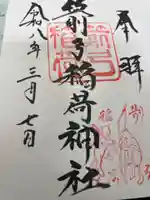 奉拝
箭弓稲荷神社
令和八年三月七日